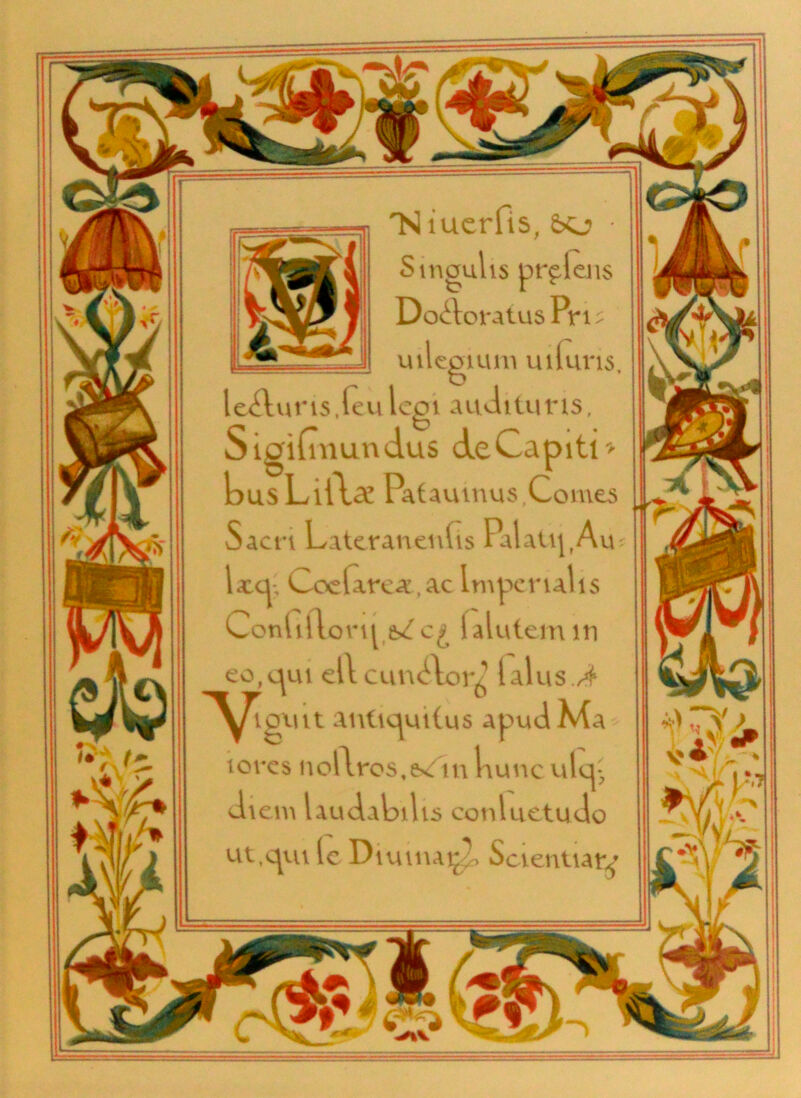 VNiuersis, &
Singulis pręsens
Doctoratus Pri-
uilegium uisuris,
lecturis, seu legi audituris,
Sigismundus de Capiti-
bus Listæ Patauinus, Comes
Sacri Lateranensis Palatij, Au-
læq; Cœsareæ, ac Imperialis
Consistorij, & cę salutem in
eo, qui est cunctorꝝ salus.
Viguit antiquitus apud Ma-
iores nostros, & in hunc usq;
diem laudabilis consuetudo
ut, qui se Diuinarꝝ Scientiarꝝ